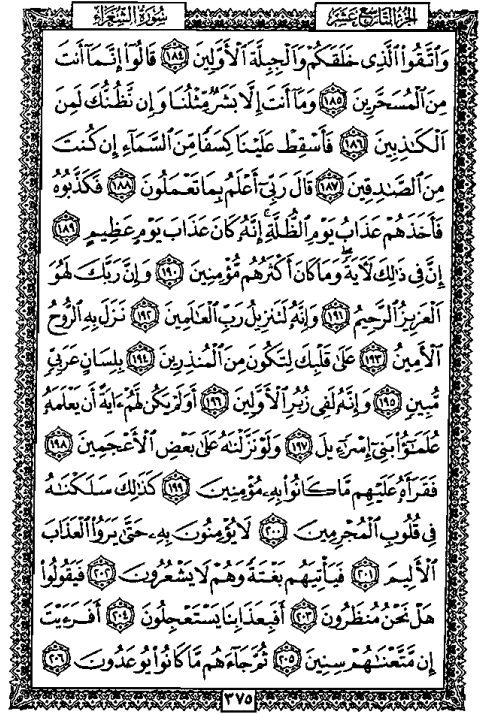 الجزء التاسع عشر
سورة الشعراء
وَاتَّقُوا الَّذِي خَلَقَكُمْ وَالْجِبِلَّةَ الْأَوَّلِينَ ١٨٤ قَالُوا إِنَّمَا أَنتَ
مِنَ الْمُسَحَّرِينَ ١٨٥ وَمَا أَنتَ إِلَّا بَشَرٌ مِّثْلُنَا وَإِن نَّظُنُّكَ لَمِنَ
الْكَاذِبِينَ ١٨٦ فَأَسْقِطْ عَلَيْنَا كِسَفًا مِّنَ السَّمَاءِ إِن كُنتَ
مِنَ الصَّادِقِينَ ١٨٧ قَالَ رَبِّي أَعْلَمُ بِمَا تَعْمَلُونَ ١٨٨ فَكَذَّبُوهُ
فَأَخَذَهُمْ عَذَابُ يَوْمِ الظُّلَّةِ إِنَّهُ كَانَ عَذَابَ يَوْمٍ عَظِيمٍ ١٨٩
إِنَّ فِي ذَٰلِكَ لَآيَةً وَمَا كَانَ أَكْثَرُهُم مُّؤْمِنِينَ ١٩٠ وَإِنَّ رَبَّكَ لَهُوَ
الْعَزِيزُ الرَّحِيمُ ١٩١ وَإِنَّهُ لَتَنزِيلُ رَبِّ الْعَالَمِينَ ١٩٢ نَزَلَ بِهِ الرُّوحُ
الْأَمِينُ ١٩٣ عَلَىٰ قَلْبِكَ لِتَكُونَ مِنَ الْمُنذِرِينَ ١٩٤ بِلِسَانٍ عَرَبِيٍّ
مُّبِينٍ ١٩٥ وَإِنَّهُ لَفِي زُبُرِ الْأَوَّلِينَ ١٩٦ أَوَلَمْ يَكُن لَّهُمْ ءَايَةً أَن يَعْلَمَهُ
عُلَمَٰٓؤُا بَنِي إِسْرَٰٓءِيلَ ١٩٧ وَلَوْ نَزَّلْنَٰهُ عَلَىٰ بَعْضِ الْأَعْجَمِينَ ١٩٨
فَقَرَأَهُ عَلَيْهِم مَّا كَانُوا بِهِ مُؤْمِنِينَ ١٩٩ كَذَٰلِكَ سَلَكْنَٰهُ
فِي قُلُوبِ الْمُجْرِمِينَ ٢٠٠ لَا يُؤْمِنُونَ بِهِ حَتَّىٰ يَرَوُا الْعَذَابَ
الْأَلِيمَ ٢٠١ فَيَأْتِيَهُم بَغْتَةً وَهُمْ لَا يَشْعُرُونَ ٢٠٢ فَيَقُولُوا
هَلْ نَحْنُ مُنظَرُونَ ٢٠٣ أَفَبِعَذَابِنَا يَسْتَعْجِلُونَ ٢٠٤ أَفَرَءَيْتَ
إِن مَّتَّعْنَٰهُمْ سِنِينَ ٢٠٥ ثُمَّ جَاءَهُم مَّا كَانُوا يُوعَدُونَ ٢٠٦
٣٧٥